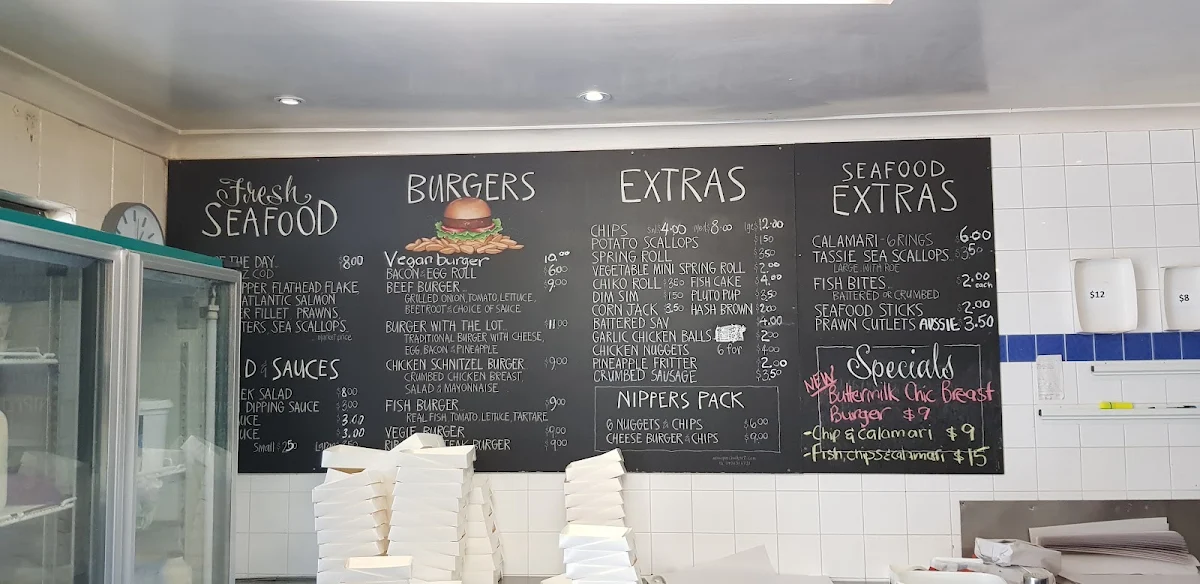 Fresh
SEAFOOD
THE DAY $8.00
Z COD
PPER FLATHEAD, FLAKE,
ATLANTIC SALMON
ER FILLET PRAWNS,
TERS, SEA SCALLOPS.
...market price
D & SAUCES
EK SALAD $8.00
DIPPING SAUCE $3.00
UCE 3.00
UCE $3.00
Small 2.50
BURGERS
Vegan burger 10.00
BACON & EGG ROLL $6.00
BEEF BURGER $9.00
GRILLED ONION, TOMATO, LETTUCE,
BEETROOT & CHOICE OF SAUCE
BURGER WITH THE LOT $11.00
TRADITIONAL BURGER WITH CHEESE,
EGG, BACON & PINEAPPLE
CHICKEN SCHNITZEL BURGER $9.00
CRUMBED CHICKEN BREAST,
SALAD & MAYONNAISE
FISH BURGER $9.00
REAL FISH, TOMATO, LETTUCE, TARTARE
VEGIE BURGER $9.00
BURGER $9.00
EXTRAS
CHIPS Sml 4.00 Med 8.00 lge 12.00
POTATO SCALLOPS $1.50
SPRING ROLL $3.50
VEGETABLE MINI SPRING ROLL $2.00
CHIKO ROLL 3.50 FISH CAKE $4.00
DIM SIM $1.50 PLUTO PUP $3.50
CORN JACK 3.50 HASH BROWN $2.00
BATTERED SAV $4.00
GARLIC CHICKEN BALLS $2.00
CHICKEN NUGGETS 6 for $4.00
PINEAPPLE FRITTER $2.00
CRUMBED SAUSAGE $3.50
NIPPERS PACK
6 NUGGETS & CHIPS $6.00
CHEESE BURGER & CHIPS $9.00
SEAFOOD
EXTRAS
CALAMARI - 6 RINGS $6.00
TASSIE SEA SCALLOPS $3.50
LARGE, WITH ROE
FISH BITES $2.00 each
BATTERED OR CRUMBED
SEAFOOD STICKS $2.00
PRAWN CUTLETS AUSSIE 3.50
Specials
NEW
Buttermilk Chic Breast
Burger $9
- Chip & Calamari $9
- Fish, chips & calamari $15
$12
$8